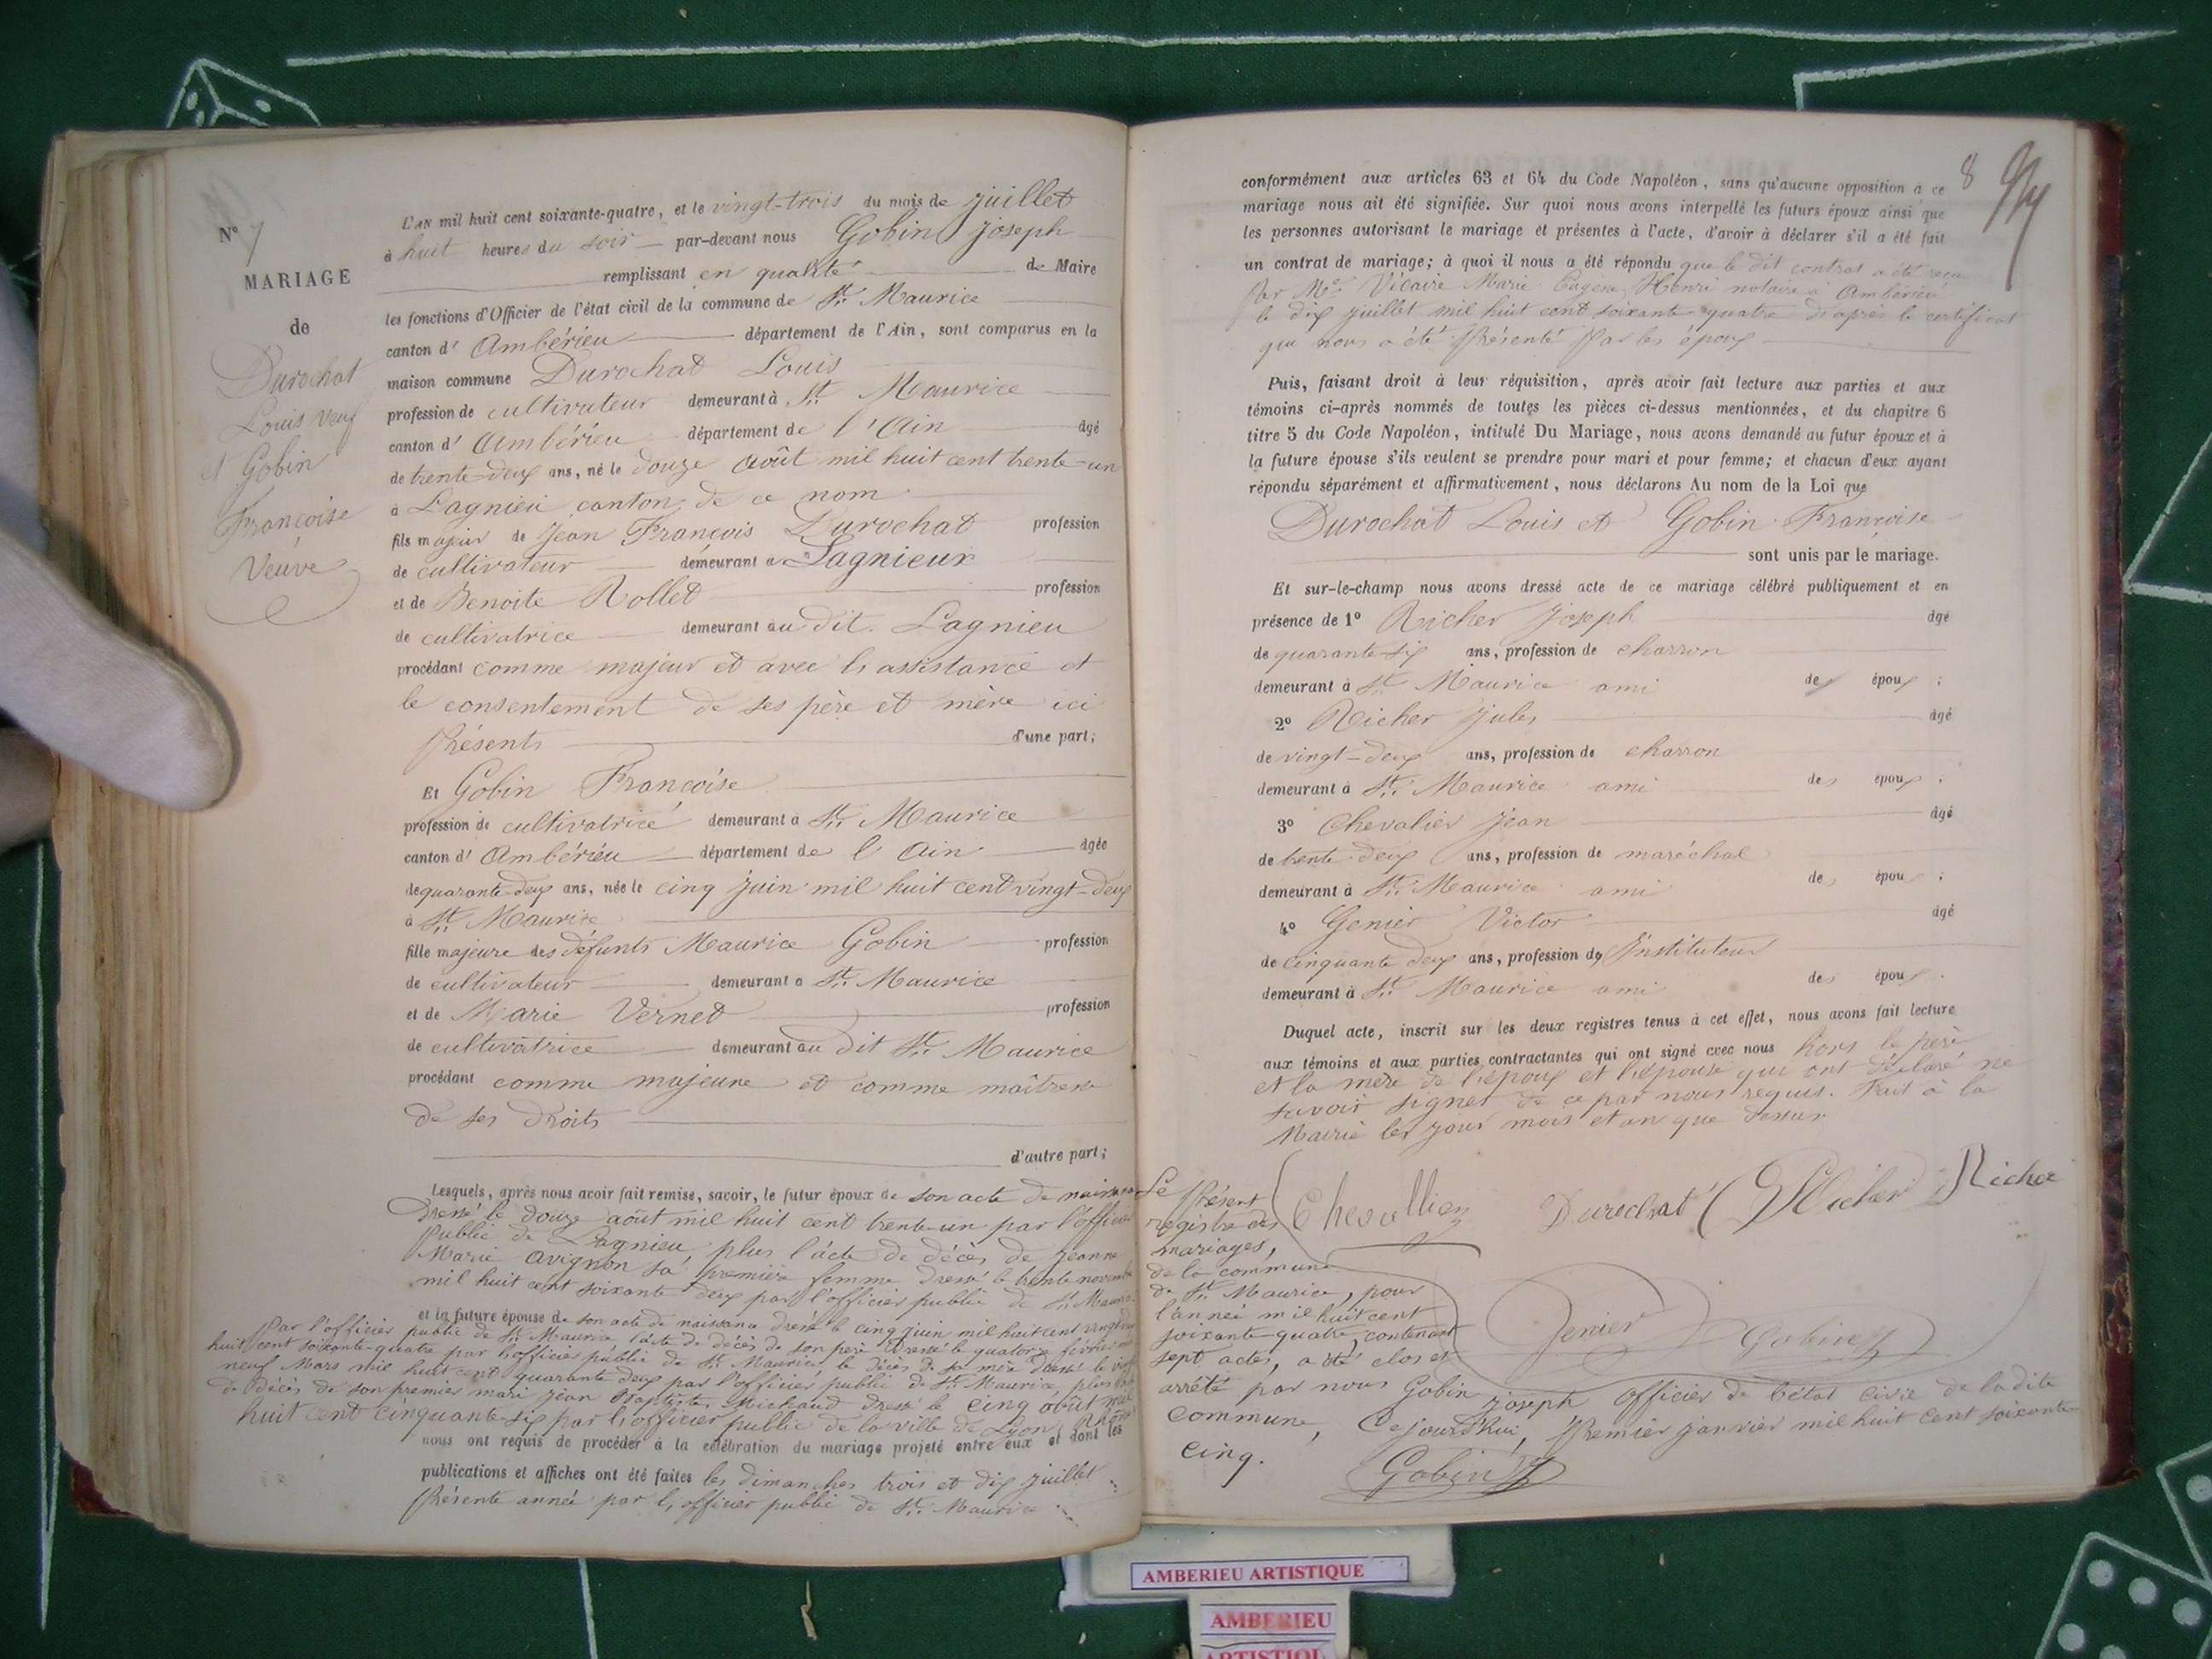 N° 7
MARIAGE
de
Durochat
Louis veuf
et Gobin
Françoise
Veuve
L'AN mil huit cent soixante-quatre, et le vingt-trois du mois de juillet
à huit heures du soir par-devant nous Gobin Joseph
remplissant en qualité de Maire
les fonctions d'Officier de l'état civil de la commune de St. Maurice
canton d' Ambérieu département de l'Ain, sont comparus en la
maison commune Durochat Louis
profession de cultivateur demeurant à St. Maurice
canton d' Ambérieu département de l'Ain âgé
de trente-deux ans, né le douze août mil huit cent trente-un
à Lagnieu canton de ce nom
fils majeur de Jean François Durochat profession
de cultivateur demeurant à Lagnieux
et de Benoite Rollet profession
de cultivatrice demeurant au dit Lagnieu
procédant comme majeur et avec l'assistance et
le consentement de ses père et mère ici
présents d'une part;
Et Gobin Françoise
profession de cultivatrice demeurant à St. Maurice
canton d' Ambérieu département de l'Ain âgée
de quarante-deux ans, née le cinq juin mil huit cent vingt-deux
à St. Maurice
fille majeure des défunts Maurice Gobin profession
de cultivateur demeurant à St. Maurice
et de Marie Vernet profession
de cultivatrice demeurant au dit St. Maurice
procédant comme majeure et comme maîtresse
de ses droits
d'autre part;
Lesquels, après nous avoir fait remise, savoir, le futur époux de son acte de naissance
dressé le douze août mil huit cent trente-un par l'officier
public de Lagnieu, plus l'acte de décès de Jeanne
Marie Avignon sa première femme dressé le trente novembre
mil huit cent soixante deux par l'officier public de St. Maurice
et la future épouse de son acte de naissance dressé le cinq juin mil huit cent vingt deux
Par l'officier public de St. Maurice l'acte de décès de son père dressé le quatorze février mil
huit cent soixante-quatre par l'officier public de St. Maurice, le décès de sa mère dressé le vingt
neuf Mars mil huit cent quarante deux par l'officier public de St. Maurice, plus
de décès de son premier mari Jean Baptiste Michaud dressé le cinq août mil
huit cent cinquante-six par l'officier public de la ville de Lyon (Rhône)
nous ont requis de procéder à la célébration du mariage projeté entre eux et dont les
publications et affiches ont été faites les dimanches trois et dix juillet
présente année par l'officier public de St. Maurice
8
conformément aux articles 63 et 64 du Code Napoléon, sans qu'aucune opposition à ce
mariage nous ait été signifiée. Sur quoi nous avons interpellé les futurs époux ainsi que
les personnes autorisant le mariage et présentes à l'acte, d'avoir à déclarer s'il a été fait
un contrat de mariage; à quoi il nous a été répondu que le dit contrat a été reçu
par Me. Vicaire Marie Eugène Henri notaire à Ambérieu
le dix juillet mil huit cent soixante quatre d'après le certificat
qui nous a été présenté par les époux
Puis, faisant droit à leur réquisition, après avoir fait lecture aux parties et aux
témoins ci-après nommés de toutes les pièces ci-dessus mentionnées, et du chapitre 6
titre 5 du Code Napoléon, intitulé Du Mariage, nous avons demandé au futur époux et à
la future épouse s'ils veulent se prendre pour mari et pour femme; et chacun d'eux ayant
répondu séparément et affirmativement, nous déclarons Au nom de la Loi que
Durochat Louis et Gobin Françoise
sont unis par le mariage.
Et sur-le-champ nous avons dressé acte de ce mariage célébré publiquement et en
présence de 1° Richer Joseph âgé
de quarante-six ans, profession de charron
demeurant à St. Maurice ami des époux;
2° Richer Jules âgé
de vingt-deux ans, profession de charron
demeurant à St. Maurice ami des époux;
3° Chevalier Jean âgé
de trente deux ans, profession de maréchal
demeurant à St. Maurice ami des époux;
4° Genier Victor âgé
de cinquante deux ans, profession d'Instituteur
demeurant à St. Maurice ami des époux.
Duquel acte, inscrit sur les deux registres tenus à cet effet, nous avons fait lecture
aux témoins et aux parties contractantes qui ont signé avec nous hors le père
et la mère de l'époux et l'épouse qui ont déclaré ne
savoir signer de ce par nous requis. Fait à la
Mairie les jour mois et an que dessus
Chevallier Durochat Richer Richer
Genier Gobin
Le présent
registre des
mariages,
de la commune
de St. Maurice, pour
l'année mil huit cent
soixante-quatre, contenant
sept actes, a été clos et
arrêté par nous Gobin Joseph officier de l'état civil de la dite
Commune, Ce jourd'hui, Premier janvier mil huit cent soixante
cinq.
Gobin
AMBERIEU ARTISTIQUE
AMBERIEU
ARTISTIQUE